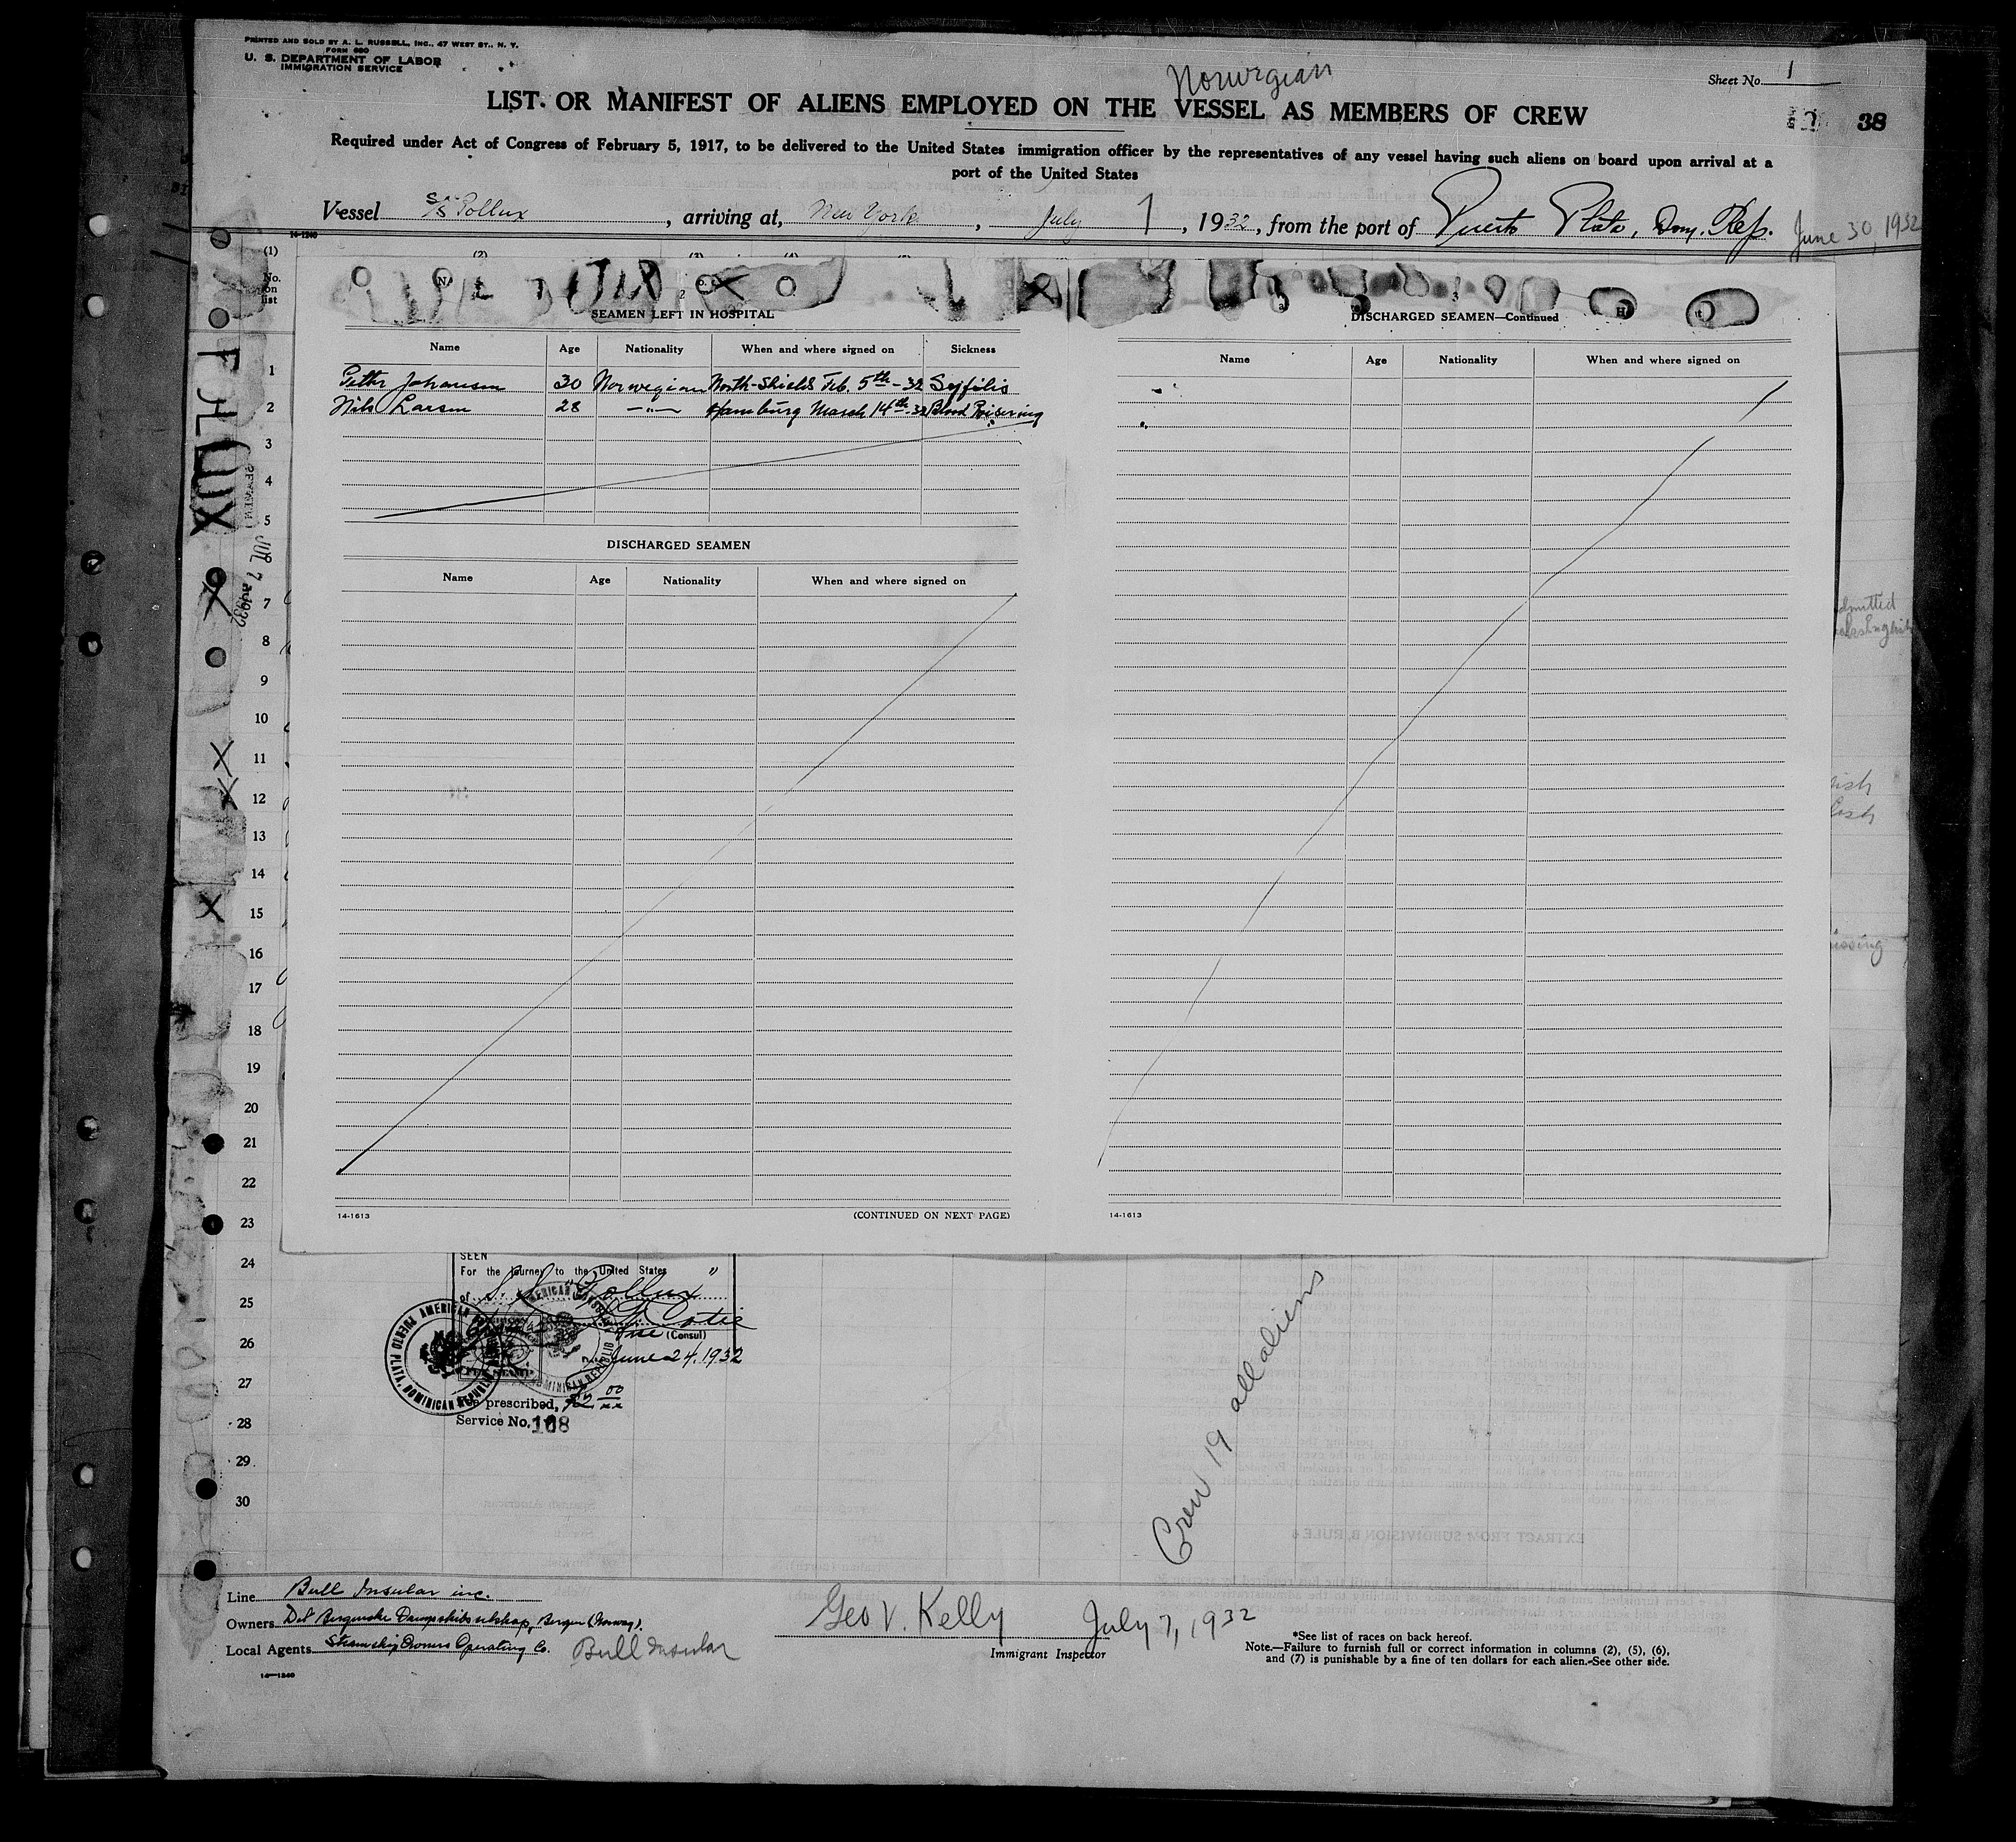 PRINTED AND SOLD BY A. L. RUSSELL, INC., 47 WEST ST., N. Y.
FORM 680
U. S. DEPARTMENT OF LABOR
IMMIGRATION SERVICE
Norwegian
Sheet No. 1
LIST OR MANIFEST OF ALIENS EMPLOYED ON THE VESSEL AS MEMBERS OF CREW
38
Required under Act of Congress of February 5, 1917, to be delivered to the United States immigration officer by the representatives of any vessel having such aliens on board upon arrival at a
port of the United States
Vessel S/S Pollux, arriving at, New York, July 7, 1932, from the port of Puerto Plata, Dom. Rep. June 30, 1932
14-1240
(1) (2) (3) (4)
No. on list
SEAMEN LEFT IN HOSPITAL
Name Age Nationality When and where signed on Sickness
Petter Johansen 30 Norwegian North-Shields Feb. 5th - 32 Syfilis
Nils Larsen 28 -"- Hamburg March 14th-32 Blood Poisening
DISCHARGED SEAMEN
Name Age Nationality When and where signed on
14-1613 (CONTINUED ON NEXT PAGE)
3
DISCHARGED SEAMEN—Continued
Name Age Nationality When and where signed on
14-1613
POLLUX
JUL 7 1932
1
2
3
4
5
7
8
9
10
11
12
13
14
15
16
17
18
19
20
21
22
23
24
25
26
27
28
29
30
SEEN
For the journey to the United States
of S.S. "Pollux"
Vice (Consul)
June 24, 1932
AMERICAN
PUERTO PLATA, DOMINICAN REPUBLIC
Fee prescribed, $2.00
Service No. 168
Crew 19 all aliens
Line Bull Insular inc.
Owners Det Bergenske Dampskibsselskap, Bergen (Norway).
Local Agents Steamship Owners Operating Co. Bull Insular
14-1240
Geo V. Kelly July 7, 1932
Immigrant Inspector
*See list of races on back hereof.
Note.—Failure to furnish full or correct information in columns (2), (5), (6),
and (7) is punishable by a fine of ten dollars for each alien.—See other side.